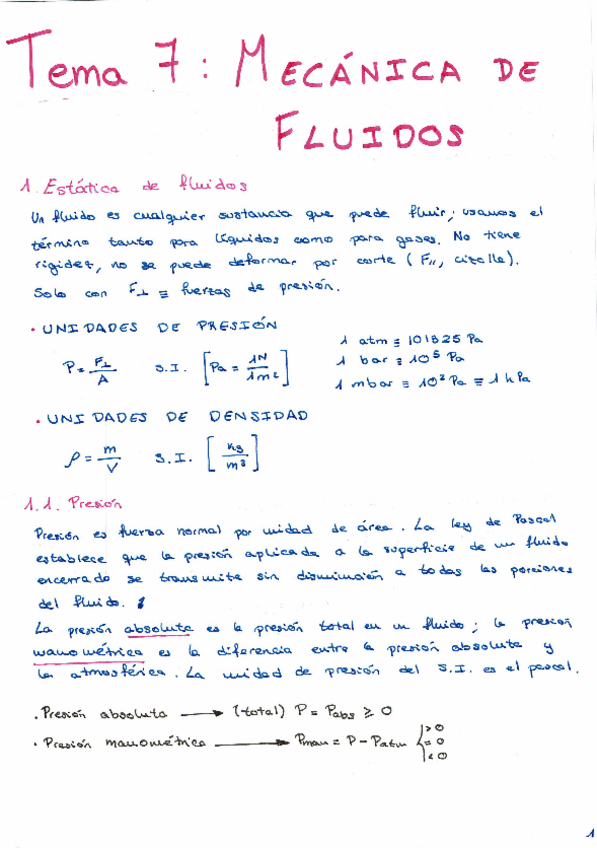 Tema 7: MECÁNICA DE
FLUIDOS
1. Estática de fluidos
Un fluido es cualquier sustancia que puede fluir; usamos el
término tanto para líquidos como para gases. No tiene
rigidez, no se puede deformar por corte (F//, cizalla).
Solo con F⊥ ≡ fuerzas de presión.
• UNIDADES DE PRESIÓN
P = F⊥/A S.I. [Pa = 1N/1m²]
1 atm ≡ 101325 Pa
1 bar ≡ 10⁵ Pa
1 mbar ≡ 10² Pa ≡ 1 hPa
• UNIDADES DE DENSIDAD
ρ = m/V S.I. [kg/m³]
1.1. Presión
Presión es fuerza normal por unidad de área. La ley de Pascal
establece que la presión aplicada a la superficie de un fluido
encerrado se transmite sin disminución a todas las porciones
del fluido.
La presión absoluta es la presión total en un fluido; la presión
manométrica es la diferencia entre la presión absoluta y
la atmosférica. La unidad de presión del S.I. es el pascal.
• Presión absoluta ⟶ (total) P = Pabs ≥ 0
• Presión manométrica ⟶ Pman = P - Patm { > 0
= 0
< 0
1